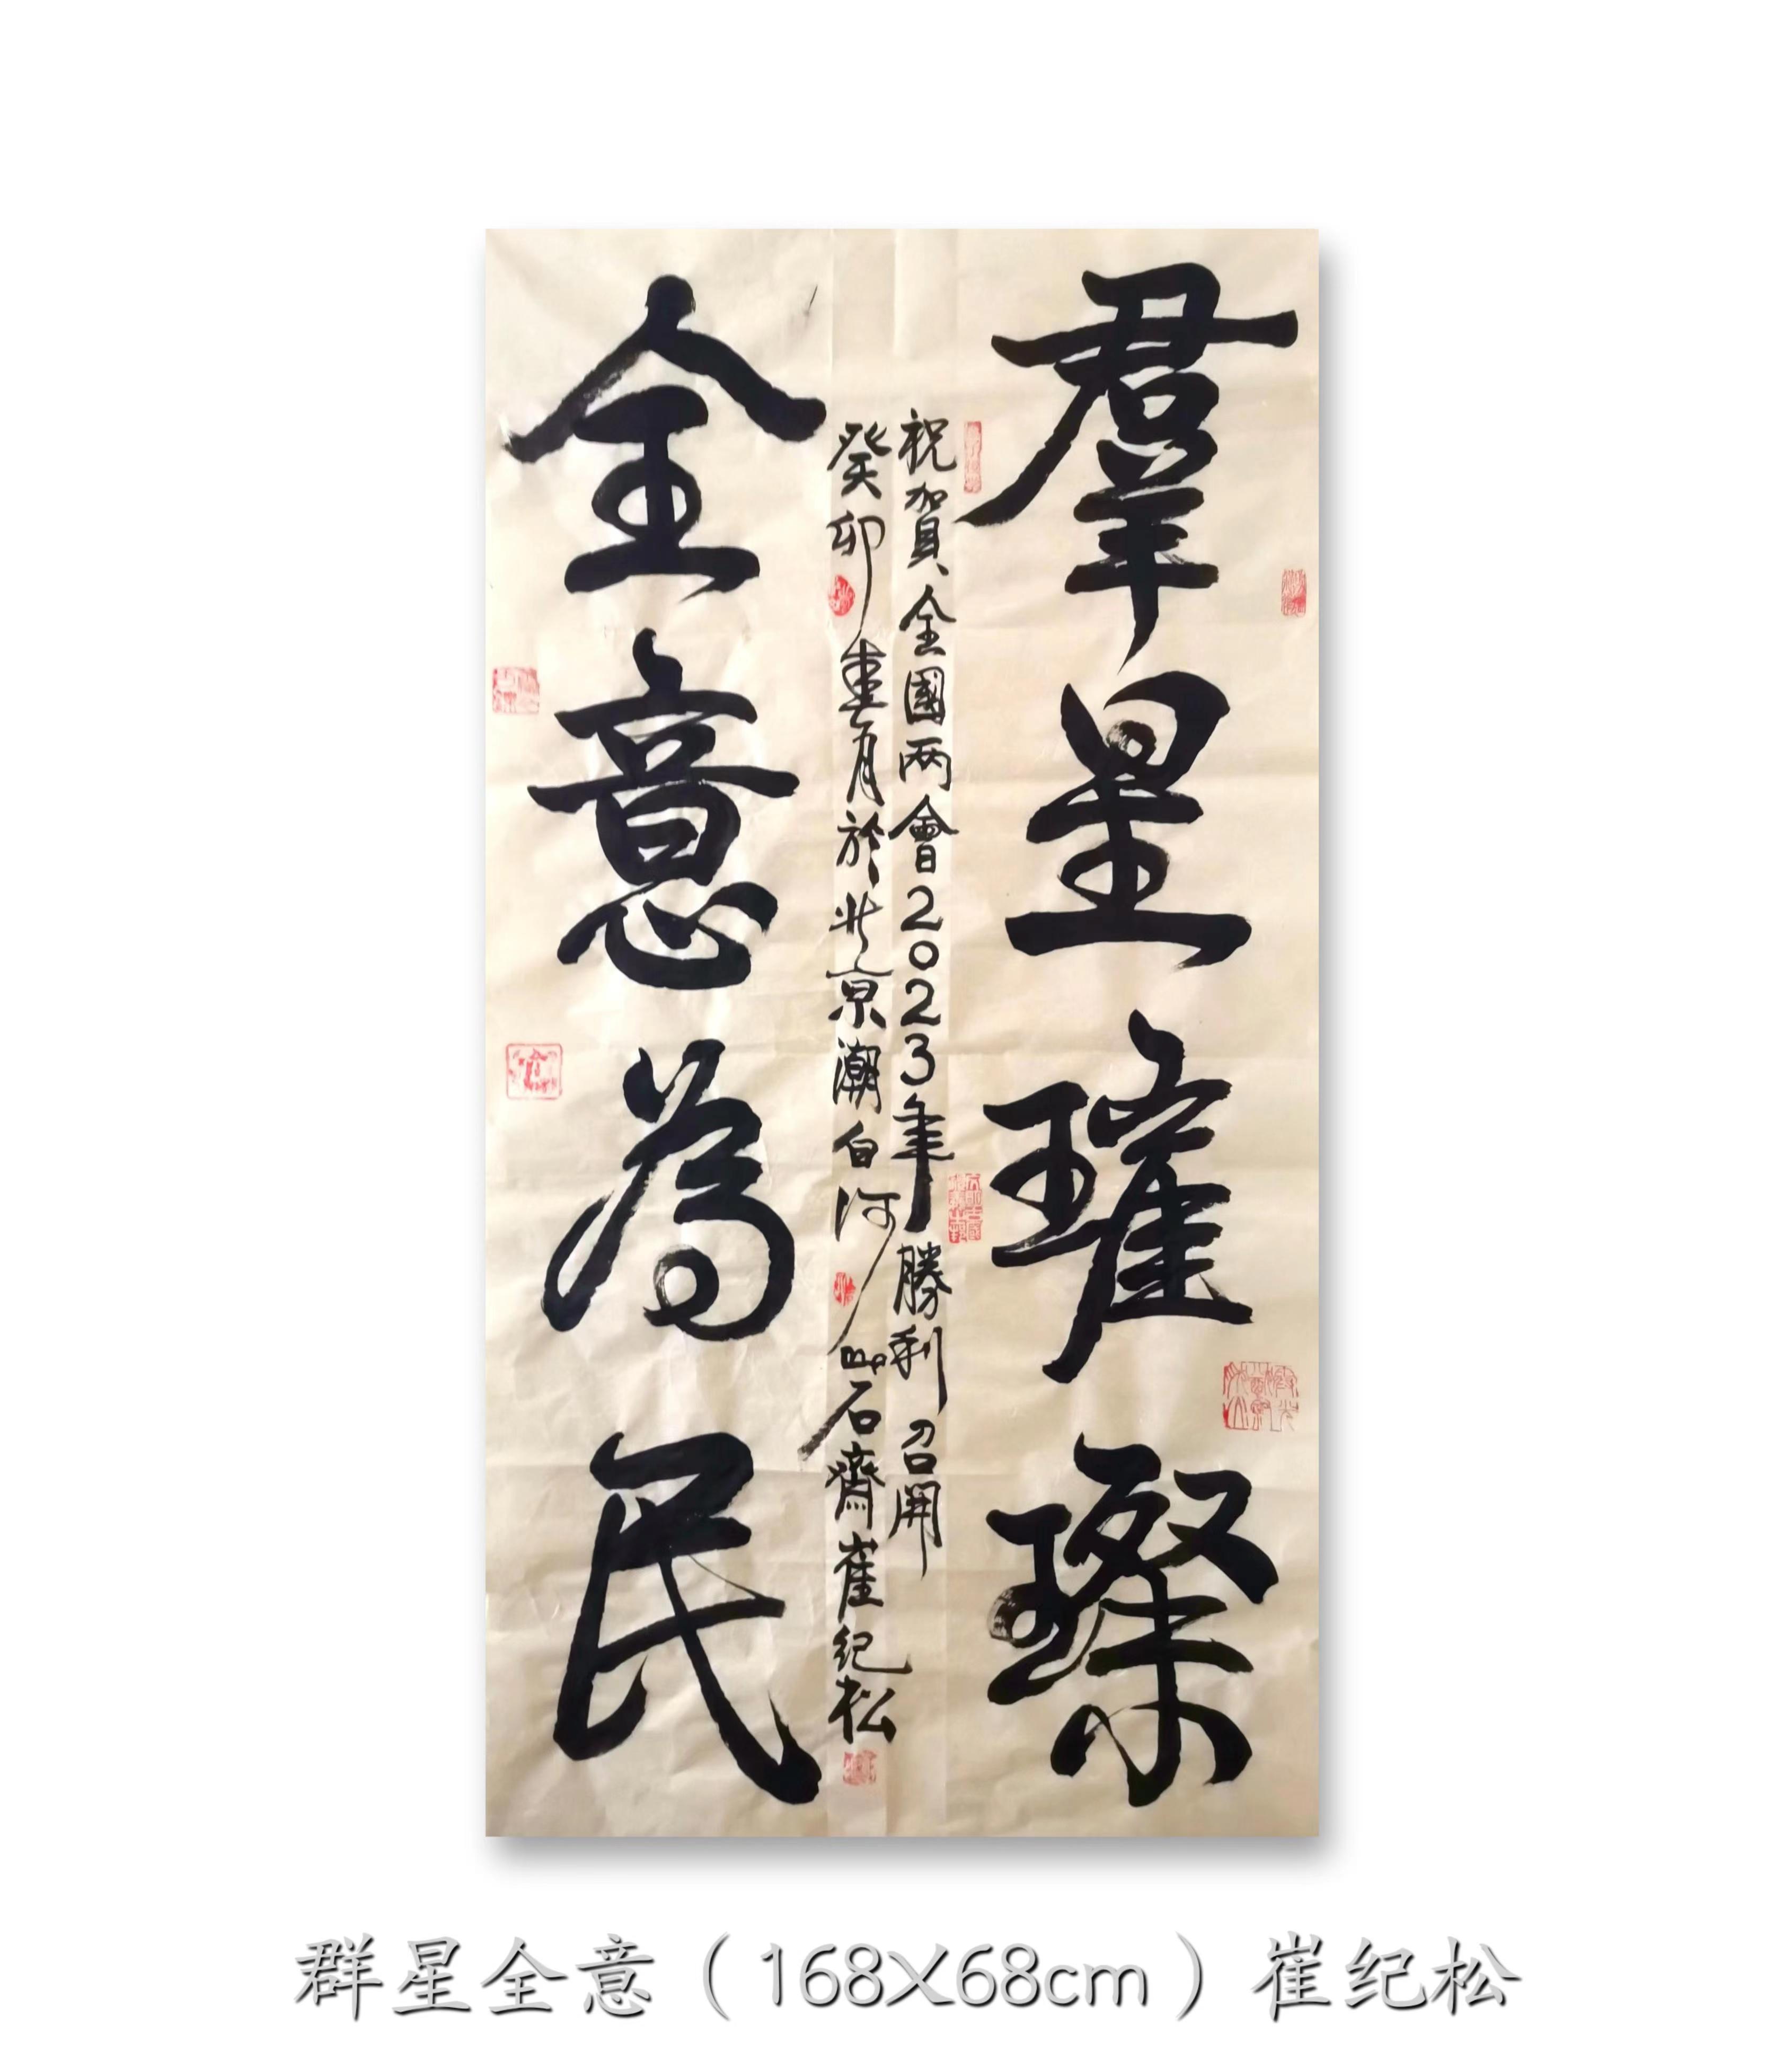 羣星璀璨
祝賀全國两會2023年勝利召開
癸卯 月於北京潮白河 石齋崔纪松
全意為民
群星全意（168X68cm）崔纪松